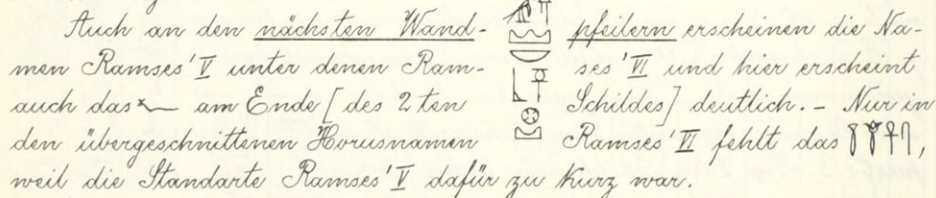 Auch an den nächsten Wand- pfeilern erscheinen die Na-
men Ramses' V unter denen Ram- ses' VI und hier erscheint
auch das am Ende [des 2ten Schildes] deutlich. – Nur in
den übergeschnittenen Horusnamen Ramses' VI fehlt das ,
weil die Standarte Ramses' V dafür zu kurz war.